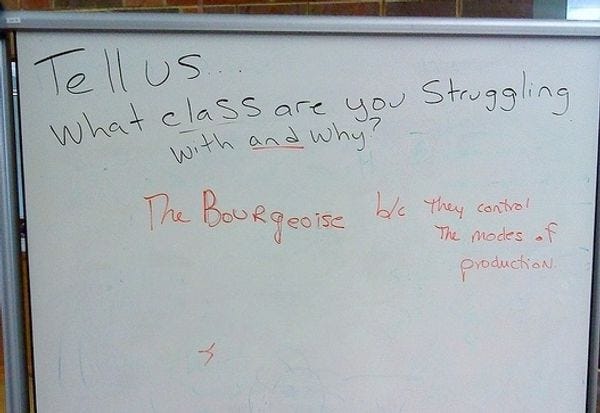 Tell us...
What class are you Struggling
with and why?
The Bourgeoise b/c They control
The modes of
production.